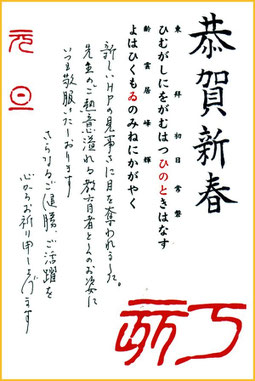 恭賀新春
東拝初日常磐
ひむがしにをがむはつひのときはなす
齢雲居峰輝
よはひくもゐのみねにかがやく
丁酉
新しいHPの見事さに目を奪われました。
先生のご熱意溢れる教育者としてのお姿に
いつも敬服いたしております
さらなるご健勝、ご活躍を
心からお祈り申し上げます
元旦